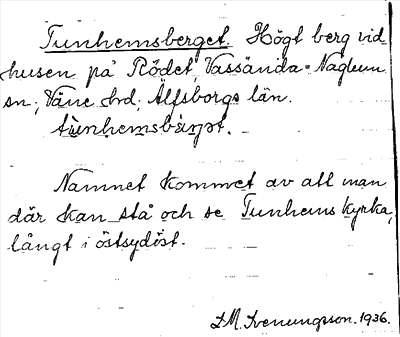 Tunhemsberget. Högt berg vid
husen på Rödet, Vassända-Naglum
sn; Väne hd; Älfsborgs län.
tùnhemsbàrjət.
Namnet kommet av att man
där kan stå och se Tunhems kyrka,
långt i östsydöst.
D.M. Svenungsson. 1936.